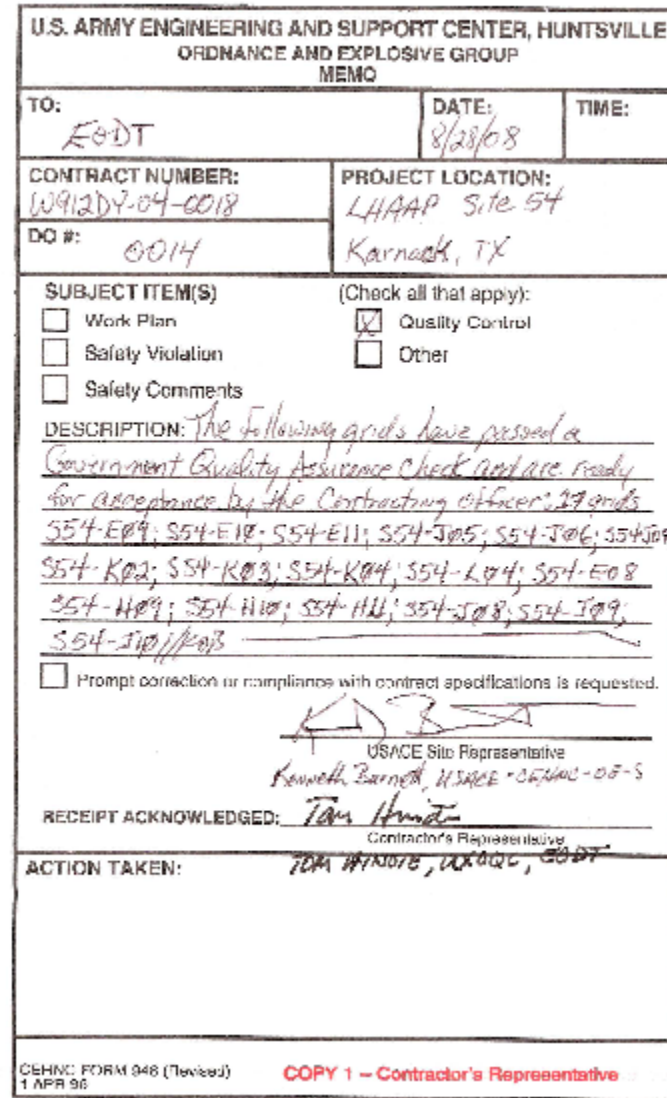 U.S. ARMY ENGINEERING AND SUPPORT CENTER, HUNTSVILLE
ORDNANCE AND EXPLOSIVE GROUP
MEMO
TO:
EODT
DATE:
8/28/08
TIME:
CONTRACT NUMBER:
W912DY-04-0018
PROJECT LOCATION:
LHAAP Site 54
Karnack, TX
DO #:
0014
SUBJECT ITEM(S)
(Check all that apply):
Work Plan
X Quality Control
Safety Violation
Other
Safety Comments
DESCRIPTION: The following grids have passed a
Government Quality Assurance Check and are ready
for acceptance by the Contracting officer: grids
S54-E09; S54-E10; S54-E11; S54-J05; S54-J06; S54-J07
S54-K02; S54-K03; S54-K04; S54-L04; S54-E08
S54-H09; S54-H10; S54-H11; S54-J08; S54-J09;
S54-J10
Prompt correction or compliance with contract specifications is requested.
USACE Site Representative
Kenneth Barnett, USACE-CEHNC-OE-S
RECEIPT ACKNOWLEDGED: Tom
Contractor's Representative
TOM, UXOQC, EODT
ACTION TAKEN:
CEHNC FORM 948 (Revised)
1 APR 96
COPY 1 – Contractor's Representative